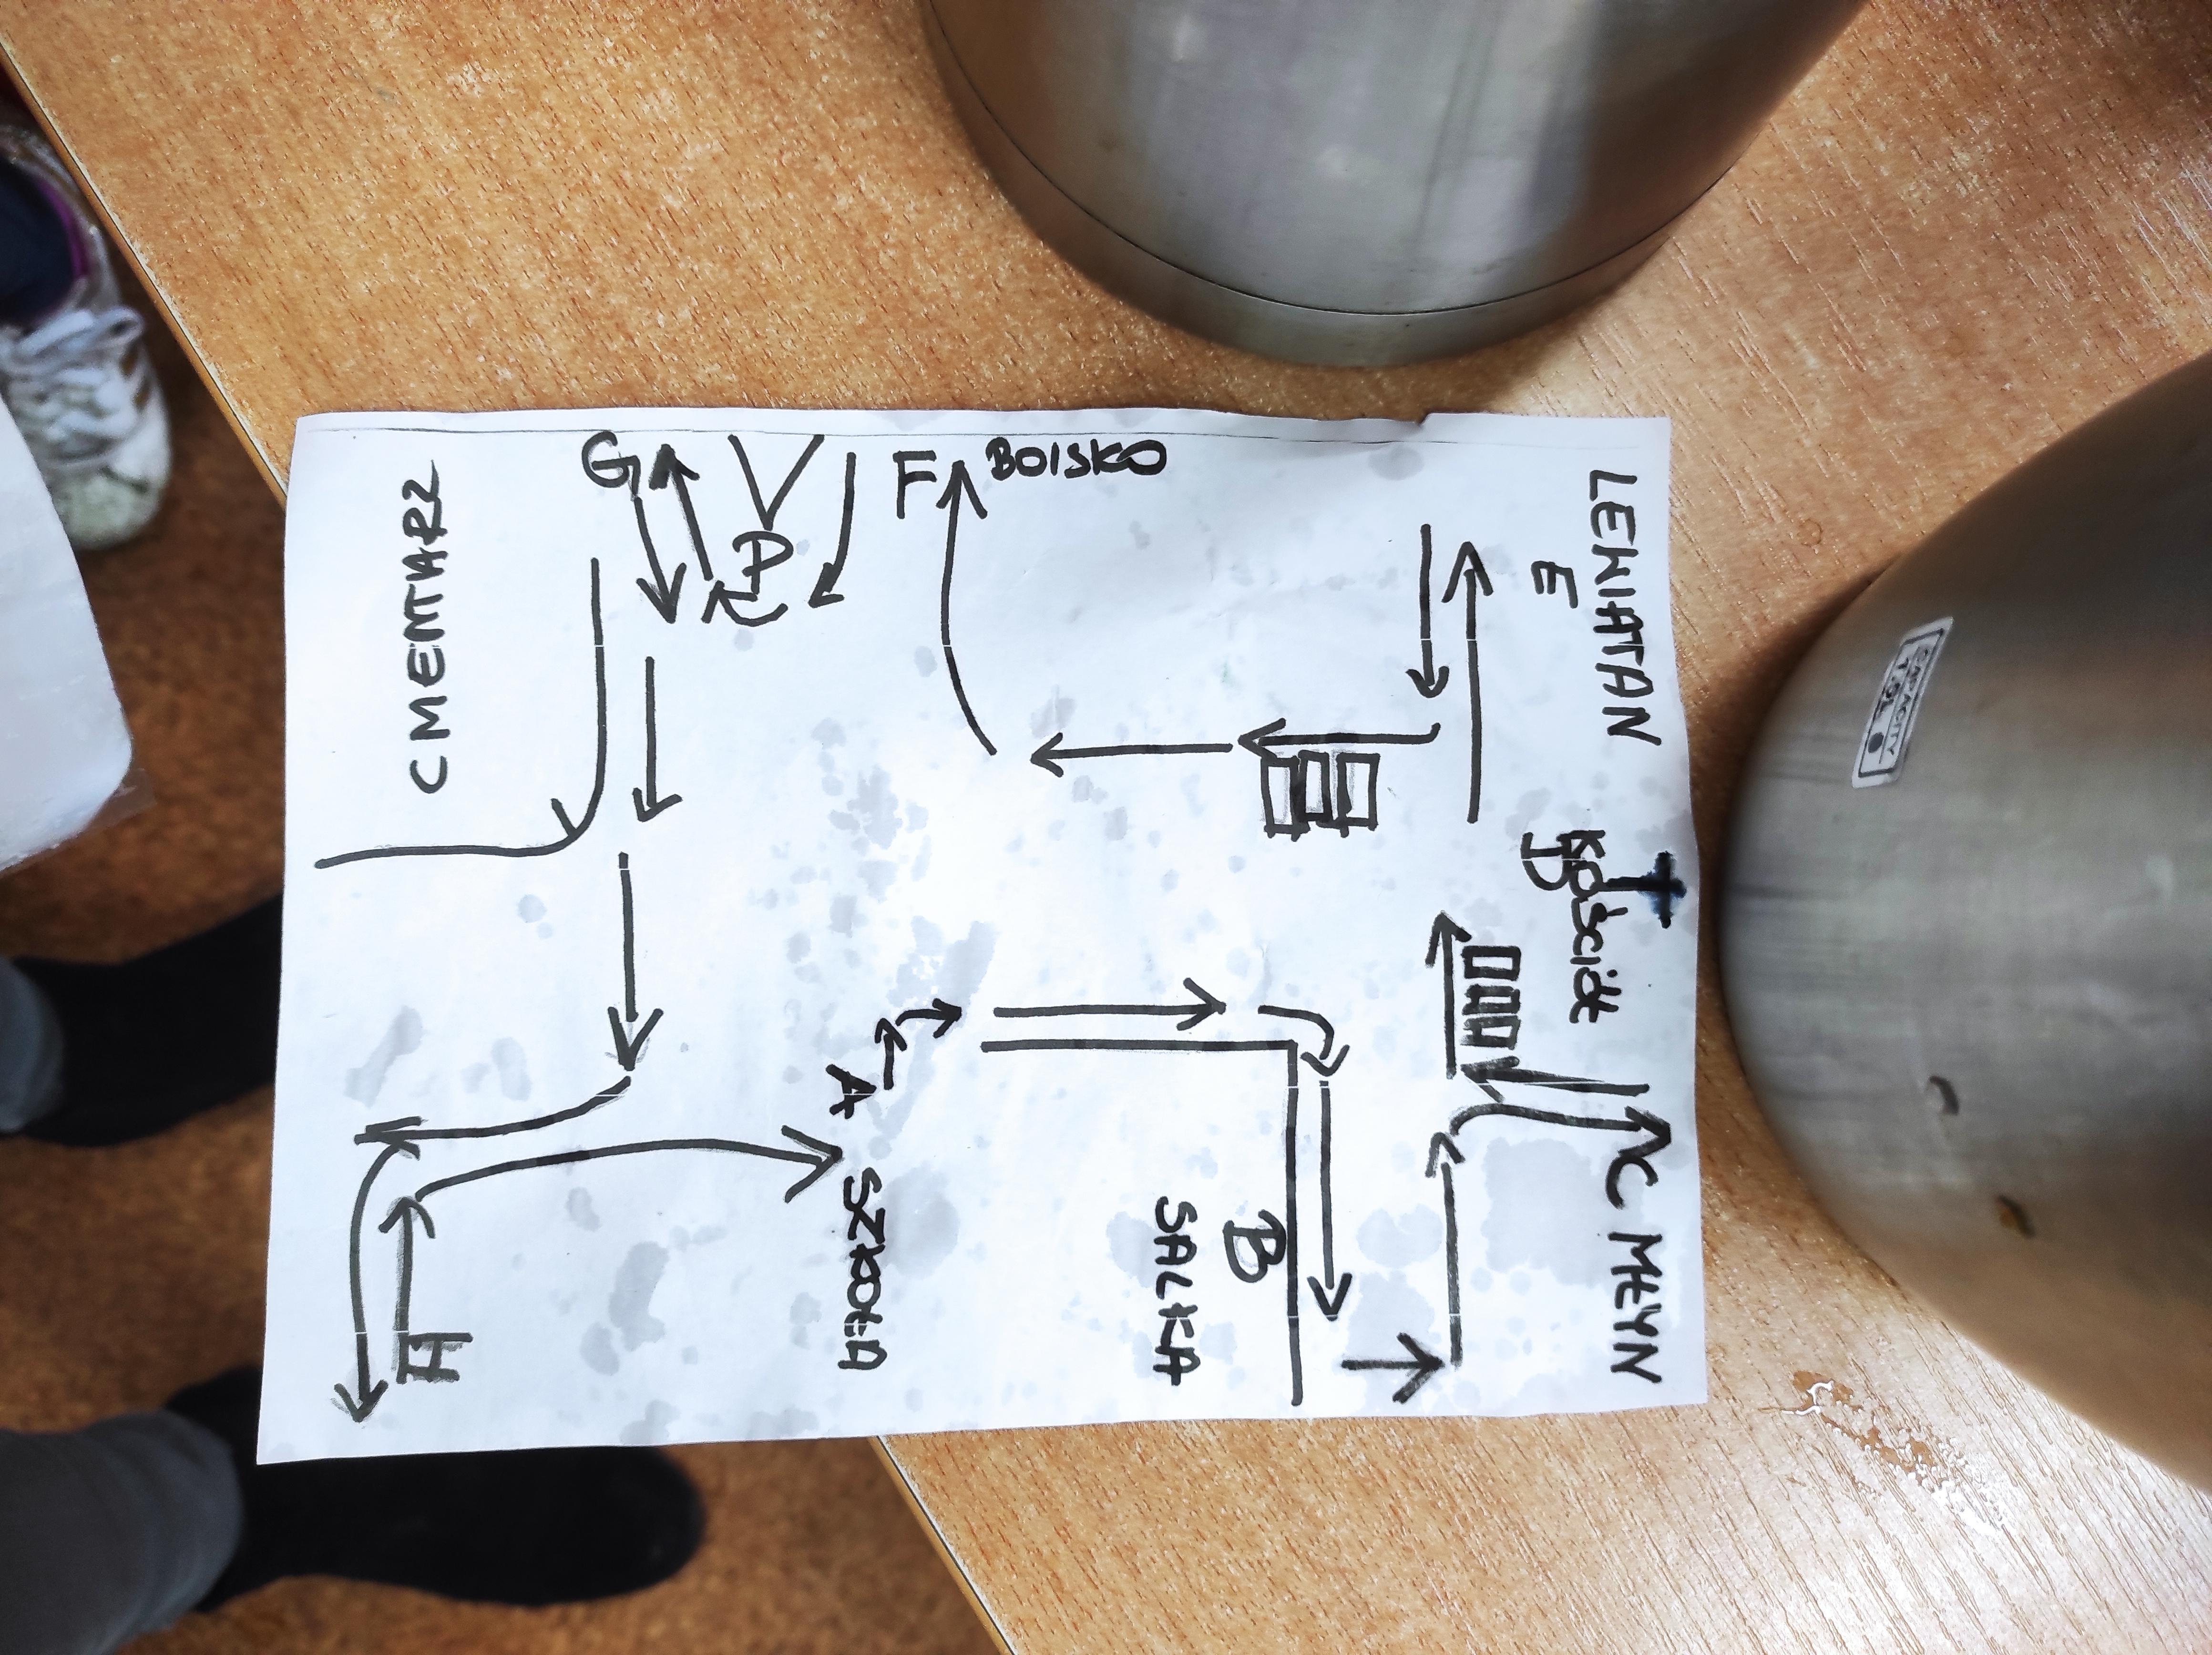 LEWIATAN
E
KOŚCIÓŁ
D
C MŁYN
B
SALKA
BOISKO
F
A
SZKOŁA
P
G
CMENTARZ
H
CAPACITY
1.9L